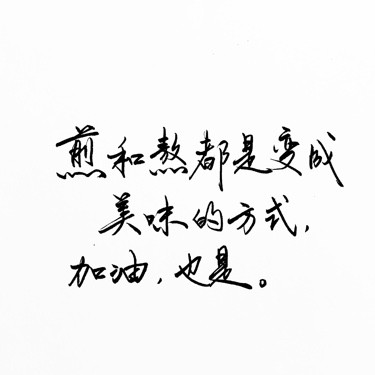 煎和熬都是变成
美味的方式，
加油，也是。